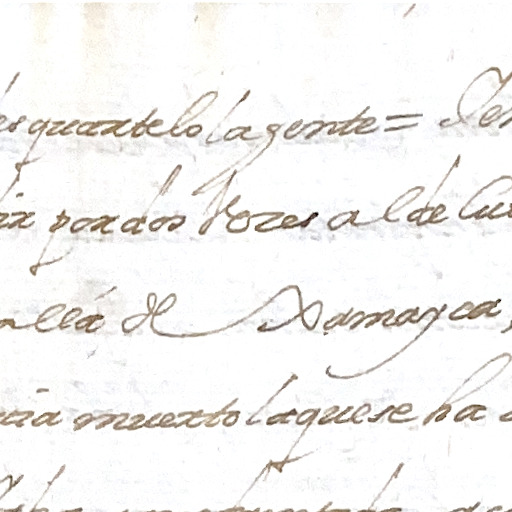 desquartelo la gente = Ten
ir por dos Vozes al de Cu
allá de Xamayca,
via muerto la que se ha